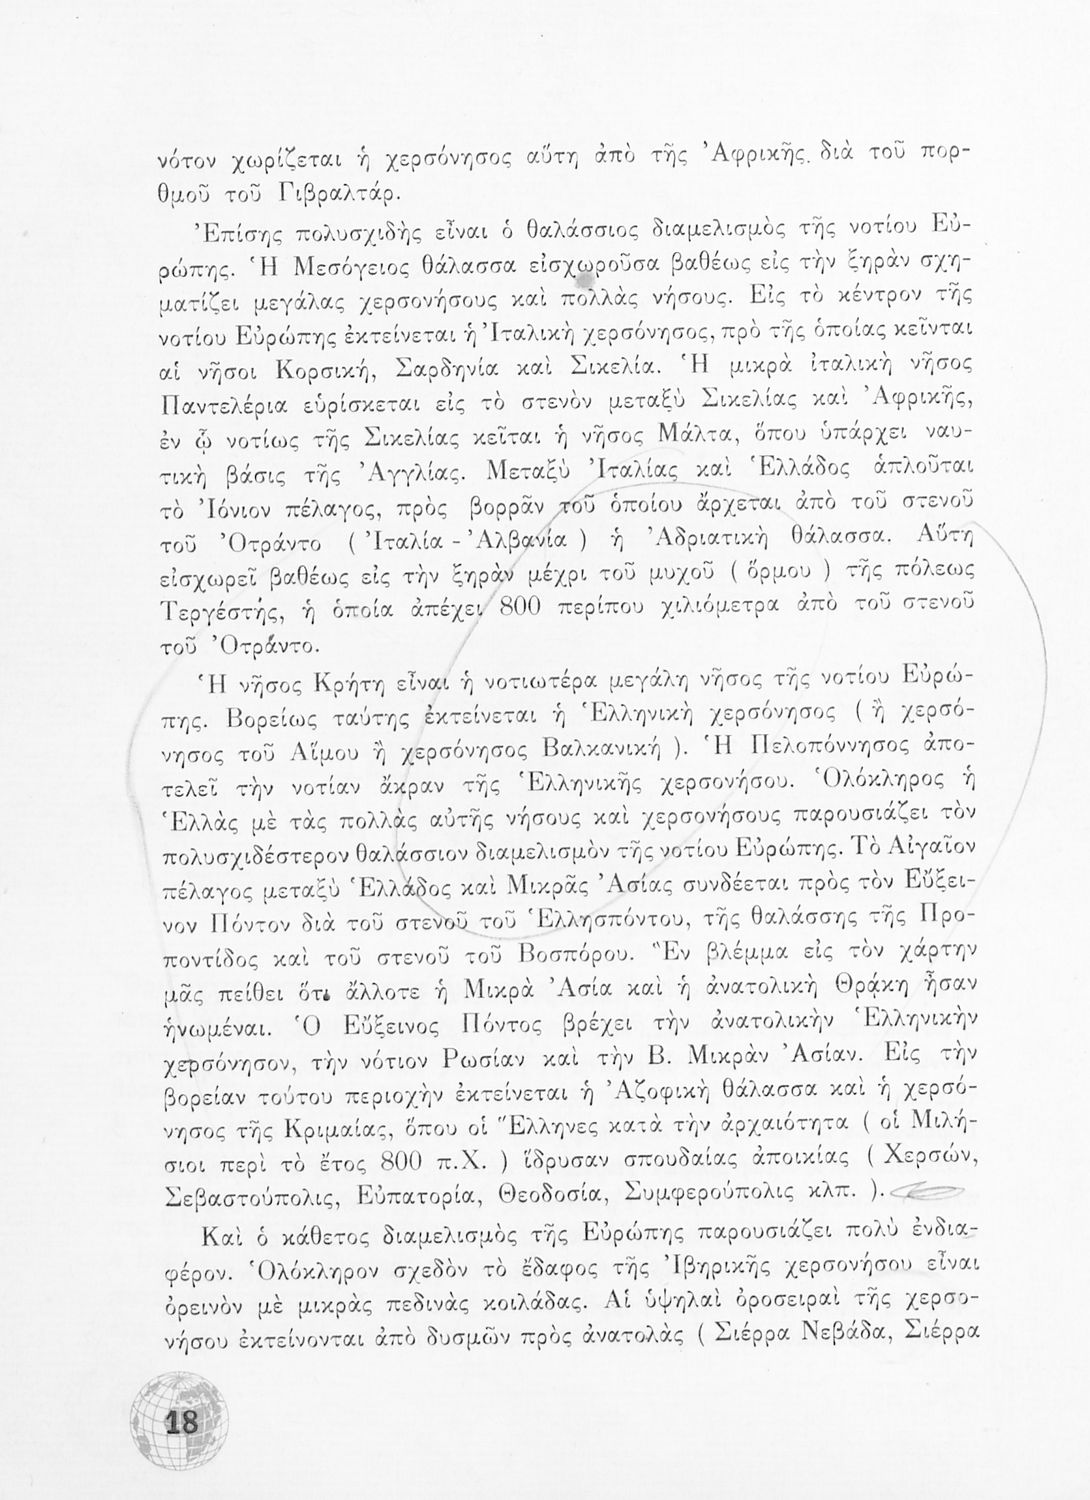 νότον χωρίζεται ἡ χερσόνησος αὕτη ἀπὸ τῆς Ἀφρικῆς. διὰ τοῦ πορ-
θμοῦ τοῦ Γιβραλτάρ.
Ἐπίσης πολυσχιδὴς εἶναι ὁ θαλάσσιος διαμελισμὸς τῆς νοτίου Εὐ-
ρώπης. Ἡ Μεσόγειος θάλασσα εἰσχωροῦσα βαθέως εἰς τὴν ξηρὰν σχη-
ματίζει μεγάλας χερσονήσους καὶ πολλὰς νήσους. Εἰς τὸ κέντρον τῆς
νοτίου Εὐρώπης ἐκτείνεται ἡ Ἰταλικὴ χερσόνησος, πρὸ τῆς ὁποίας κεῖνται
αἱ νῆσοι Κορσική, Σαρδηνία καὶ Σικελία. Ἡ μικρὰ ἰταλικὴ νῆσος
Παντελέρια εὑρίσκεται εἰς τὸ στενὸν μεταξὺ Σικελίας καὶ Ἀφρικῆς,
ἐν ᾧ νοτίως τῆς Σικελίας κεῖται ἡ νῆσος Μάλτα, ὅπου ὑπάρχει ναυ-
τικὴ βάσις τῆς Ἀγγλίας. Μεταξὺ Ἰταλίας καὶ Ἑλλάδος ἁπλοῦται
τὸ Ἰόνιον πέλαγος, πρὸς βορρᾶν τοῦ ὁποίου ἄρχεται ἀπὸ τοῦ στενοῦ
τοῦ Ὀτράντο ( Ἰταλία - Ἀλβανία ) ἡ Ἀδριατικὴ θάλασσα. Αὕτη
εἰσχωρεῖ βαθέως εἰς τὴν ξηρὰν μέχρι τοῦ μυχοῦ ( ὅρμου ) τῆς πόλεως
Τεργέστής, ἡ ὁποία ἀπέχει 800 περίπου χιλιόμετρα ἀπὸ τοῦ στενοῦ
τοῦ Ὀτράντο.
Ἡ νῆσος Κρήτη εἶναι ἡ νοτιωτέρα μεγάλη νῆσος τῆς νοτίου Εὐρώ-
πης. Βορείως ταύτης ἐκτείνεται ἡ Ἑλληνικὴ χερσόνησος ( ἢ χερσό-
νησος τοῦ Αἵμου ἢ χερσόνησος Βαλκανική ). Ἡ Πελοπόννησος ἀπο-
τελεῖ τὴν νοτίαν ἄκραν τῆς Ἑλληνικῆς χερσονήσου. Ὁλόκληρος ἡ
Ἑλλὰς μὲ τὰς πολλὰς αὐτῆς νήσους καὶ χερσονήσους παρουσιάζει τὸν
πολυσχιδέστερον θαλάσσιον διαμελισμὸν τῆς νοτίου Εὐρώπης. Τὸ Αἰγαῖον
πέλαγος μεταξὺ Ἑλλάδος καὶ Μικρᾶς Ἀσίας συνδέεται πρὸς τὸν Εὔξει-
νον Πόντον διὰ τοῦ στενοῦ τοῦ Ἑλλησπόντου, τῆς θαλάσσης τῆς Προ-
ποντίδος καὶ τοῦ στενοῦ τοῦ Βοσπόρου. Ἓν βλέμμα εἰς τὸν χάρτην
μᾶς πείθει ὅτι ἄλλοτε ἡ Μικρὰ Ἀσία καὶ ἡ ἀνατολικὴ Θρᾴκη ἦσαν
ἡνωμέναι. Ὁ Εὔξεινος Πόντος βρέχει τὴν ἀνατολικὴν Ἑλληνικὴν
χερσόνησον, τὴν νότιον Ρωσίαν καὶ τὴν Β. Μικρὰν Ἀσίαν. Εἰς τὴν
βορείαν τούτου περιοχὴν ἐκτείνεται ἡ Ἀζοφικὴ θάλασσα καὶ ἡ χερσό-
νησος τῆς Κριμαίας, ὅπου οἱ Ἕλληνες κατὰ τὴν ἀρχαιότητα ( οἱ Μιλή-
σιοι περὶ τὸ ἔτος 800 π.Χ. ) ἵδρυσαν σπουδαίας ἀποικίας ( Χερσών,
Σεβαστούπολις, Εὐπατορία, Θεοδοσία, Συμφερούπολις κλπ. ).
Καὶ ὁ κάθετος διαμελισμὸς τῆς Εὐρώπης παρουσιάζει πολὺ ἐνδια-
φέρον. Ὁλόκληρον σχεδὸν τὸ ἔδαφος τῆς Ἰβηρικῆς χερσονήσου εἶναι
ὀρεινὸν μὲ μικρὰς πεδινὰς κοιλάδας. Αἱ ὑψηλαὶ ὀροσειραὶ τῆς χερσο-
νήσου ἐκτείνονται ἀπὸ δυσμῶν πρὸς ἀνατολὰς ( Σιέρρα Νεβάδα, Σιέρρα
18